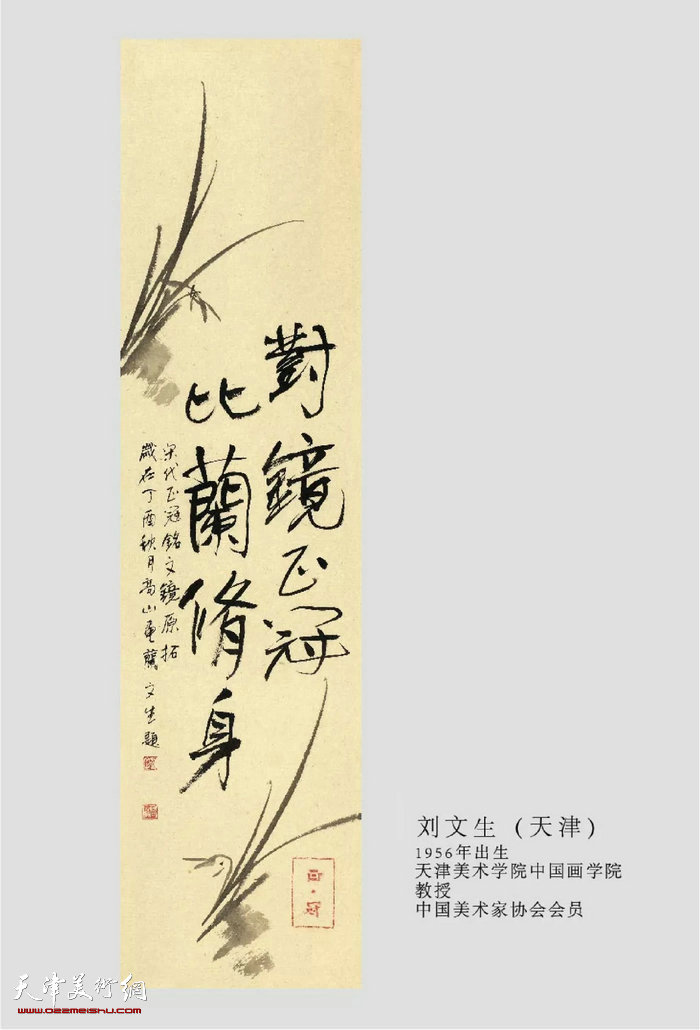 對鏡正冠
比蘭脩身
宋代正冠銘文鏡原拓
歲在丁酉秋月高山畫蘭 文生題
刘文生（天津）
1956年出生
天津美术学院中国画学院
教授
中国美术家协会会员
天津美術網
www.022meishu.com